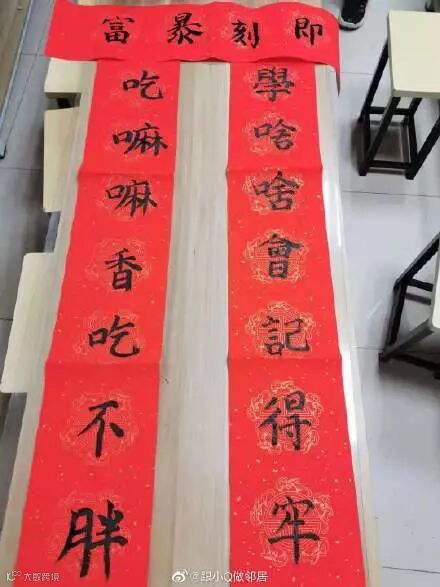 即刻暴富
學啥啥會記得牢
吃嘛嘛香吃不胖
大数跨境
@跟小Q做邻居